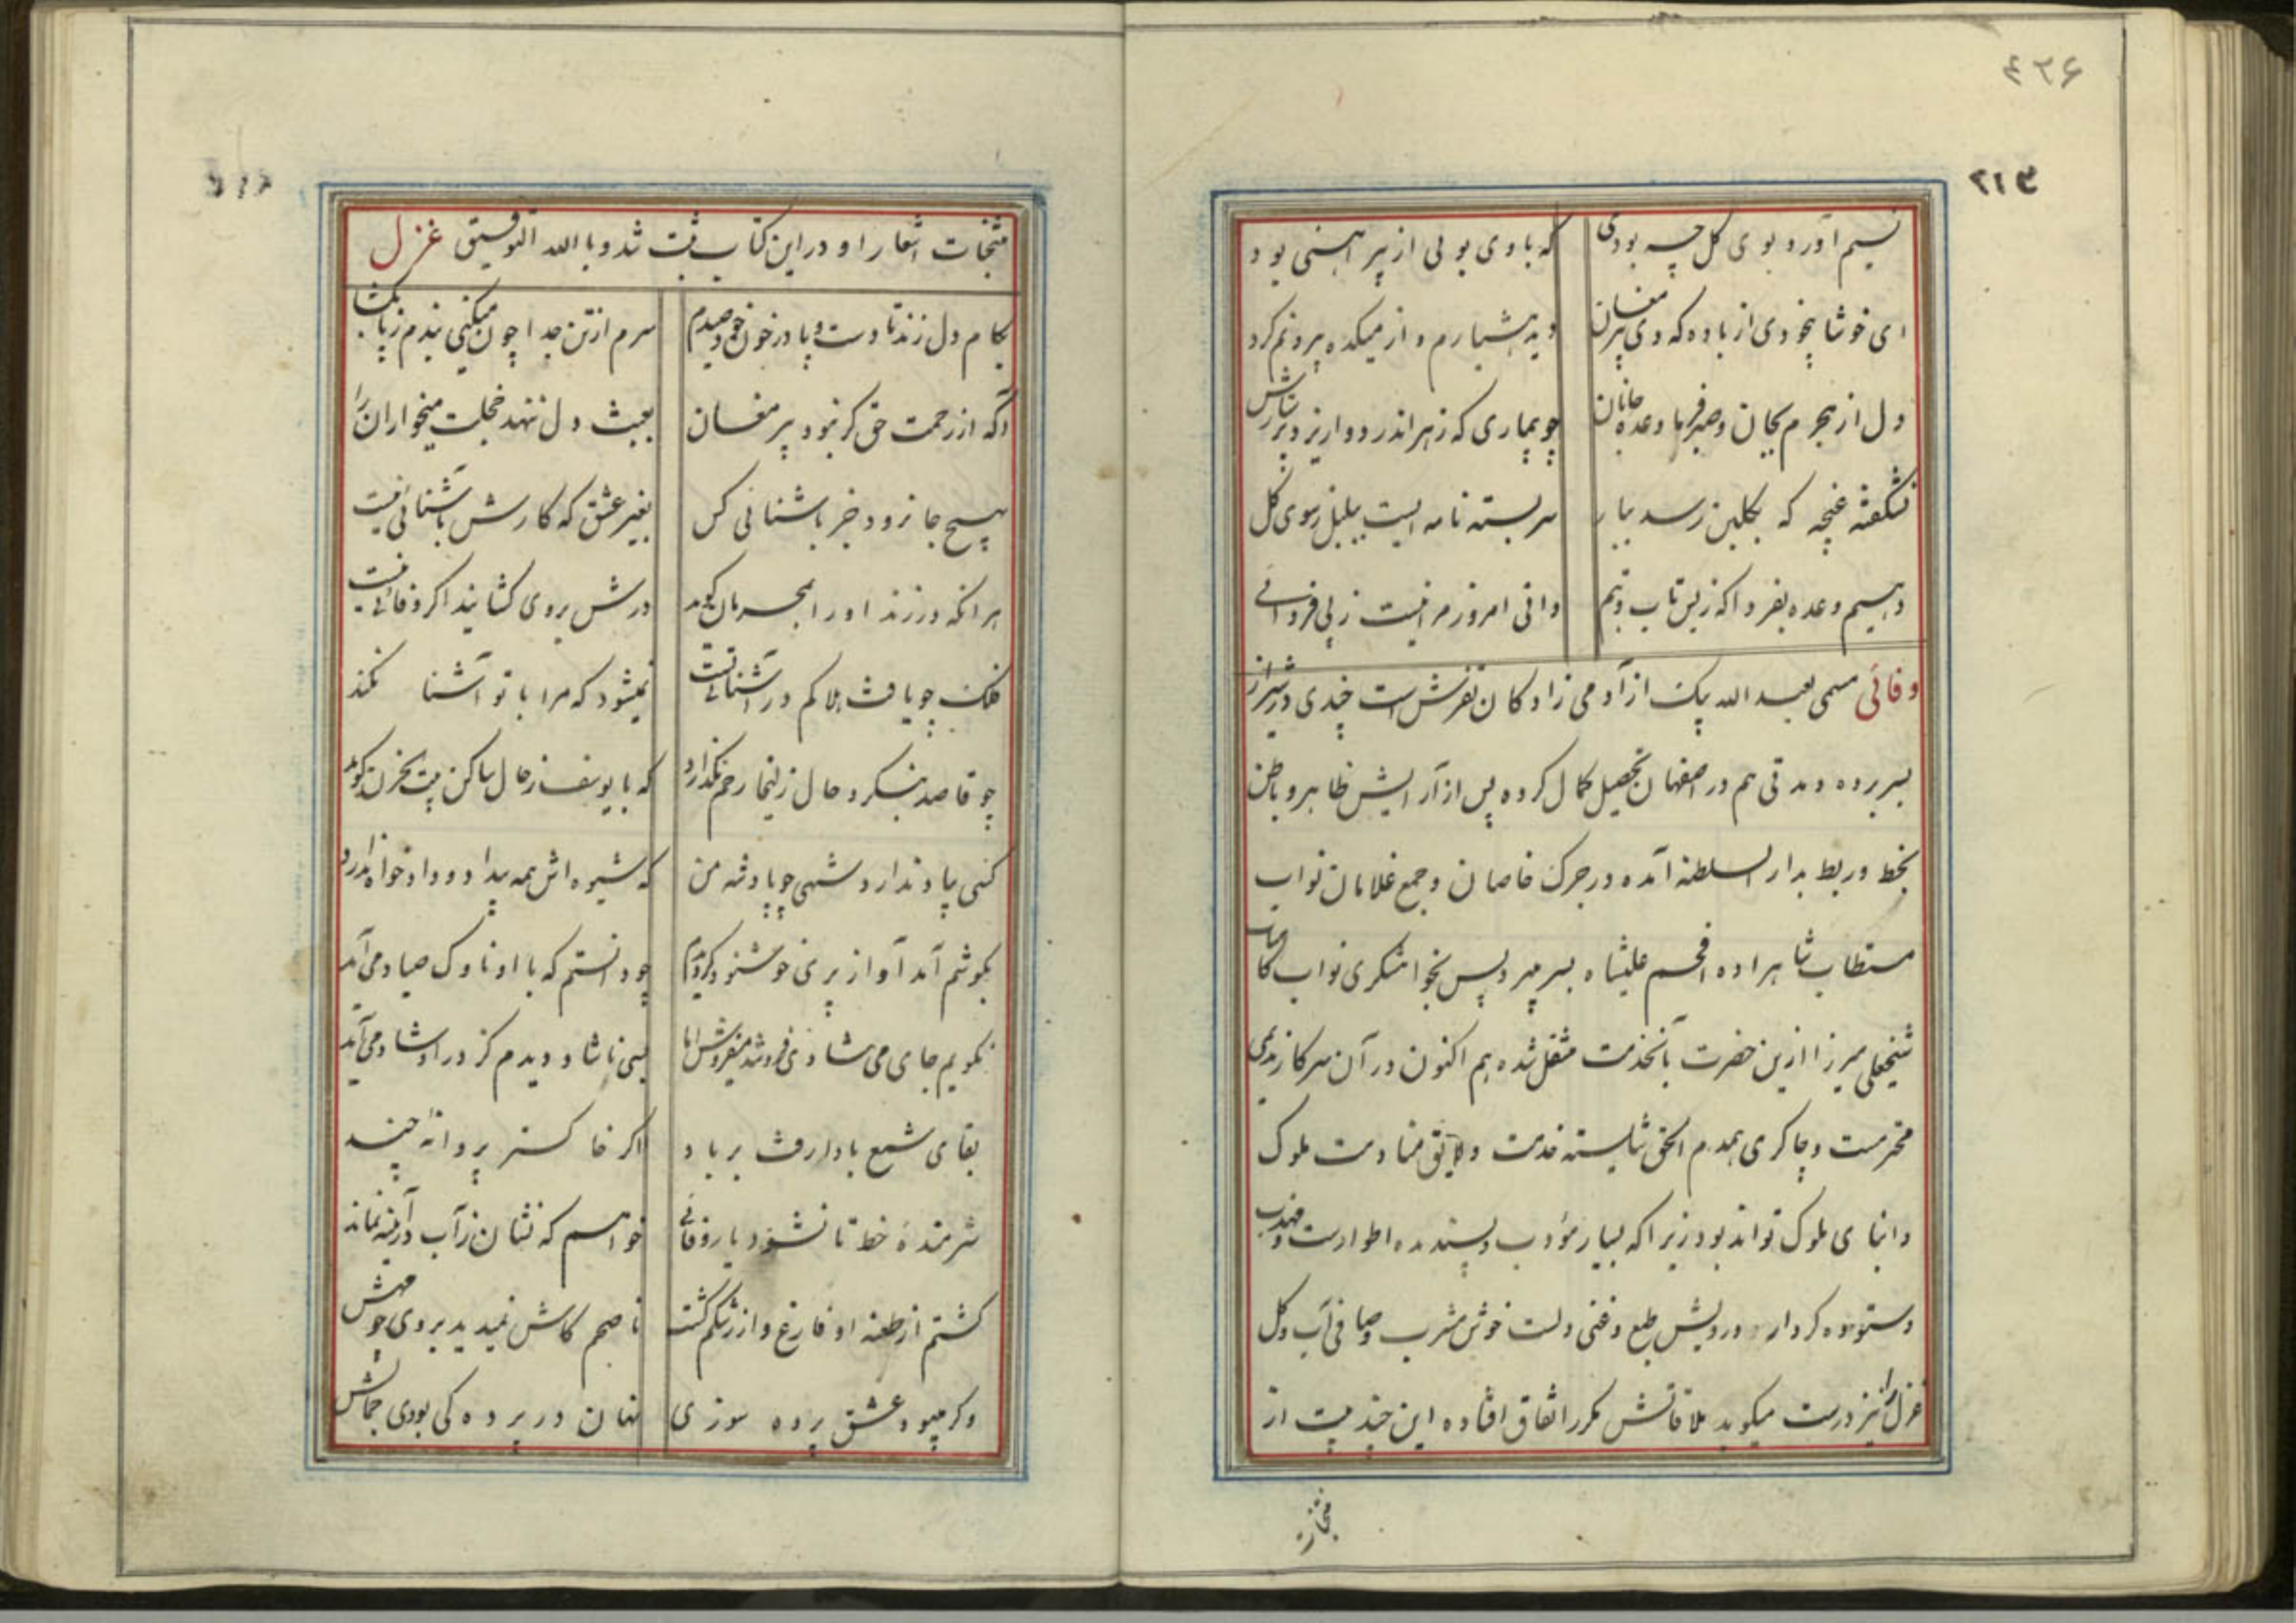 ۴۲۶
۲۱۳
نسیم آورد بوی گل چه بودی که با وی بوئی از پیراهنی بود
ای خوشا بیخودی از باده که دی پیر مغان دید هشیارم و از میکده بیرونم کرد
دل از هجرم بجان و صبر فرما وعده جانان چو بیماری که زهر اندر دوا ریزد
نشکفته غنچه که بگلبن رسد ببار سر بسته نامه ایست ببلبل ز سوی گل
دهیم وعده بفردا که زین تاب و تبم دانی امروز مرا نیست ز پی فردائی
وفائی مسمی بعبد الله بیک از آدمی زادگان تفرش است چندی در شیراز
بسر برده و مدتی هم در اصفهان تحصیل کمال کرده پس از آرایش ظاهر و باطن
بخط و ربط بدار السلطنه آمده در جرک خاصان و جمع غلامان نواب
مستطاب شاهزاده افخم علیشاه بسر میبرد پس بخواهشگری نواب
شیخعلی میرزا ازین حضرت بآنخدمت منتقل شده هم اکنون در آن سرکار ندیمی
محرمست و چاکری همدم الحق شایسته خدمت و لایق منادمت ملوک
و ابنای ملوک تواند بود زیرا که بسیار مؤدب و پسندیده اطوارست و مهذب
و ستوده کردار درویش طبع و غنی دلست خوش مشرب و صافی آب و گل
غزل را نیز درست میگوید ملاقاتش مکرر اتفاق افتاده این چند بیت از
منتخبات اشعار او در این کتاب ثبت شد و با الله التوفیق غزل
بکام دل زند تا دست و پا در خون خود صیدم سرم از تن جدا چون میکنی بندم ز پا بگشا
آگه از رحمت حق گر نبود پیر مغان بعبث دل ننهد خجلت میخواران را
بهیچ جا نرود خبر باشنائی کس بغیر عشق که کارش باشنائی نیست
هر آنکه در زند او را بگوید درش بروی گشایند اگر وفائی نیست
فلک چو یافت هلاکم در آشنائی تست نمیشود که مرا با تو آشنا نکند
چو قاصد بنگرد حال زلیخا رحم نگذارد که با یوسف ز حال ساکن بیت الحزن گوید
کسی یاد ندارد شهی چو پادشه من که شیوه اش همه بیداد و دادخواه ندارد
بگوشم آمد آواز پری خوشنود گردیدم چو دانستم که با او ناوک صیاد می آید
نگویم جای می شادی فروشد میفروش اما بسی ناشاد دیدم کز در او شاد می آید
بقای شمع بادا رفت بر باد اگر خاکستر پروانه چند
شرمندهٔ خط تا نشود یار وفائی خواهم که نشان ز آب در آئینه نماند
گشتم از طعنه او فارغ و از رشکم کشت ناصحم کاش نمیدید بروی چو مهش
وگر میبود عشق پرده سوزی نهان در پرده کی بودی جمالش
منتخبات